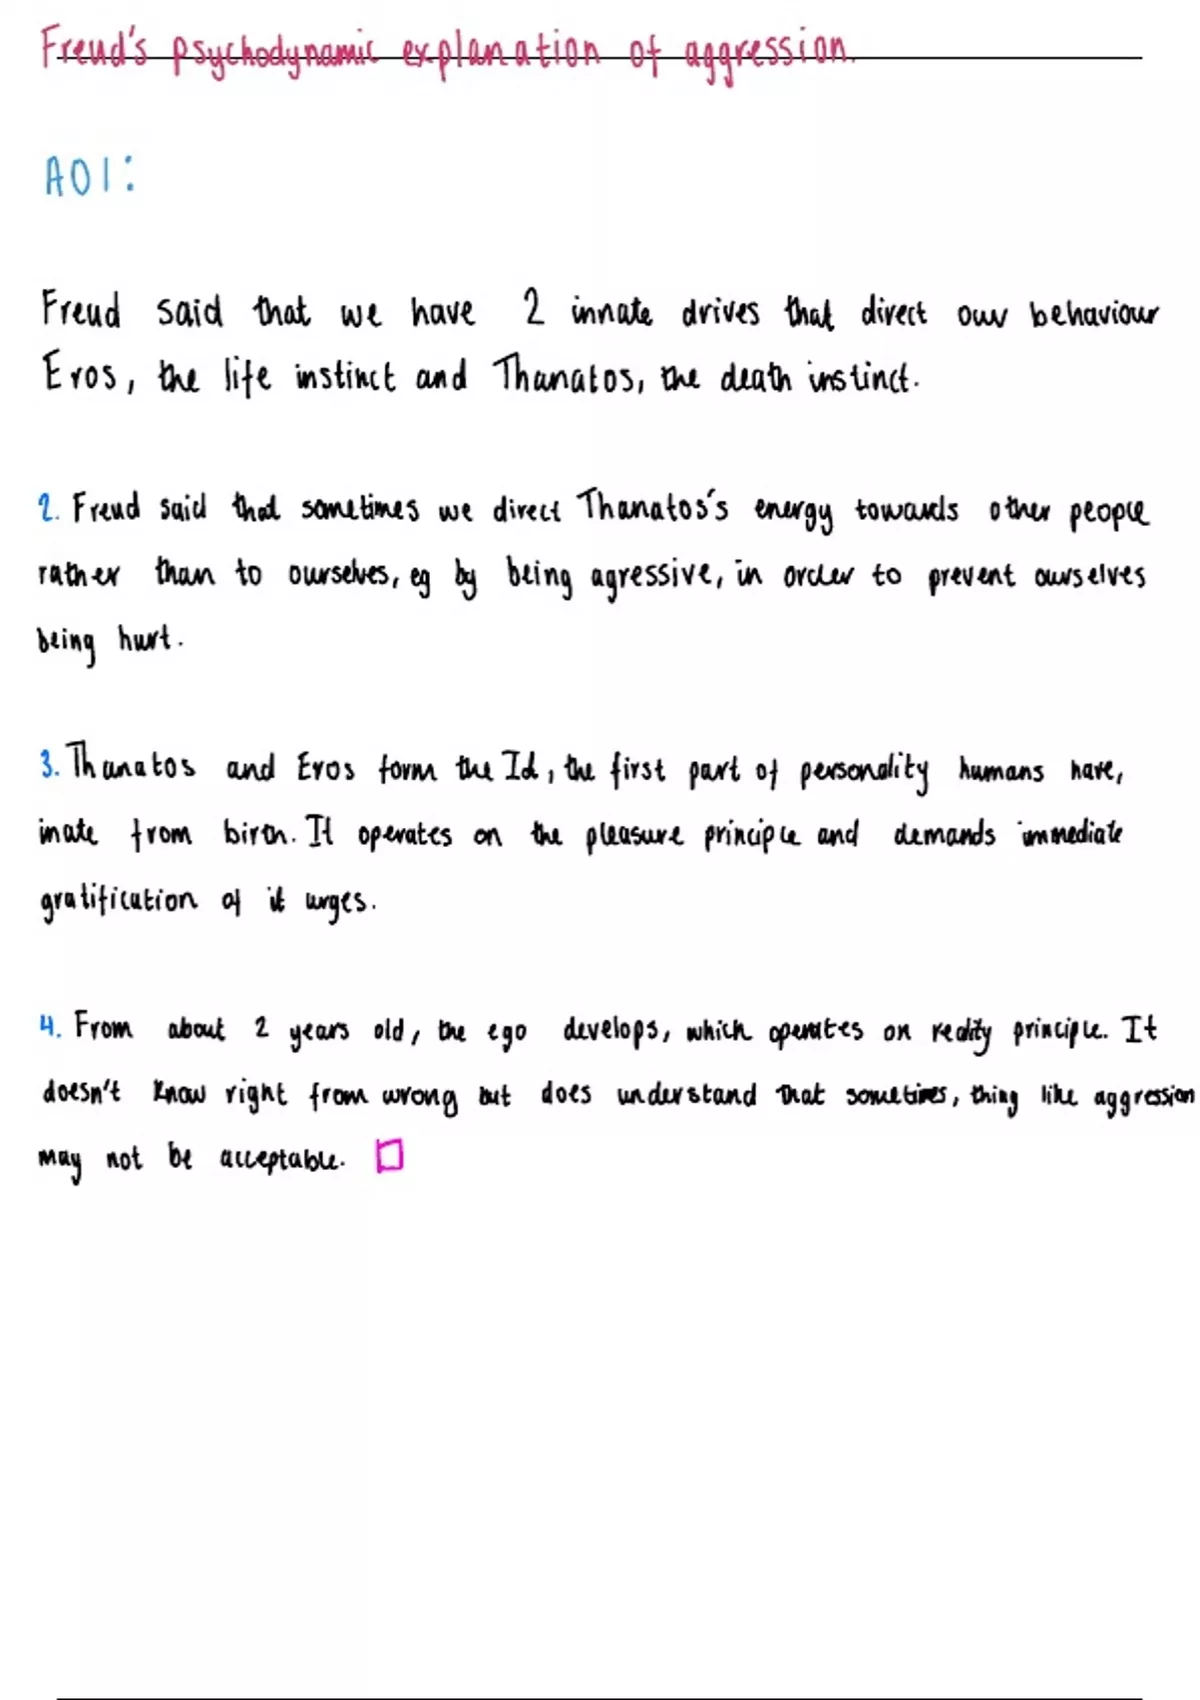 Freud's psychodynamic explanation of aggression.
AO1:
Freud said that we have 2 innate drives that direct our behaviour
Eros, the life instinct and Thanatos, the death instinct.
2. Freud said that sometimes we direct Thanatos's energy towards other people
rather than to ourselves, eg by being agressive, in order to prevent ourselves
being hurt.
3. Thanatos and Eros form the Id, the first part of personality humans have,
inate from birth. It operates on the pleasure principle and demands immediate
gratification of it urges.
4. From about 2 years old, the ego develops, which operates on reality principle. It
doesn't know right from wrong but does understand that sometimes, thing like aggression
may not be acceptable.